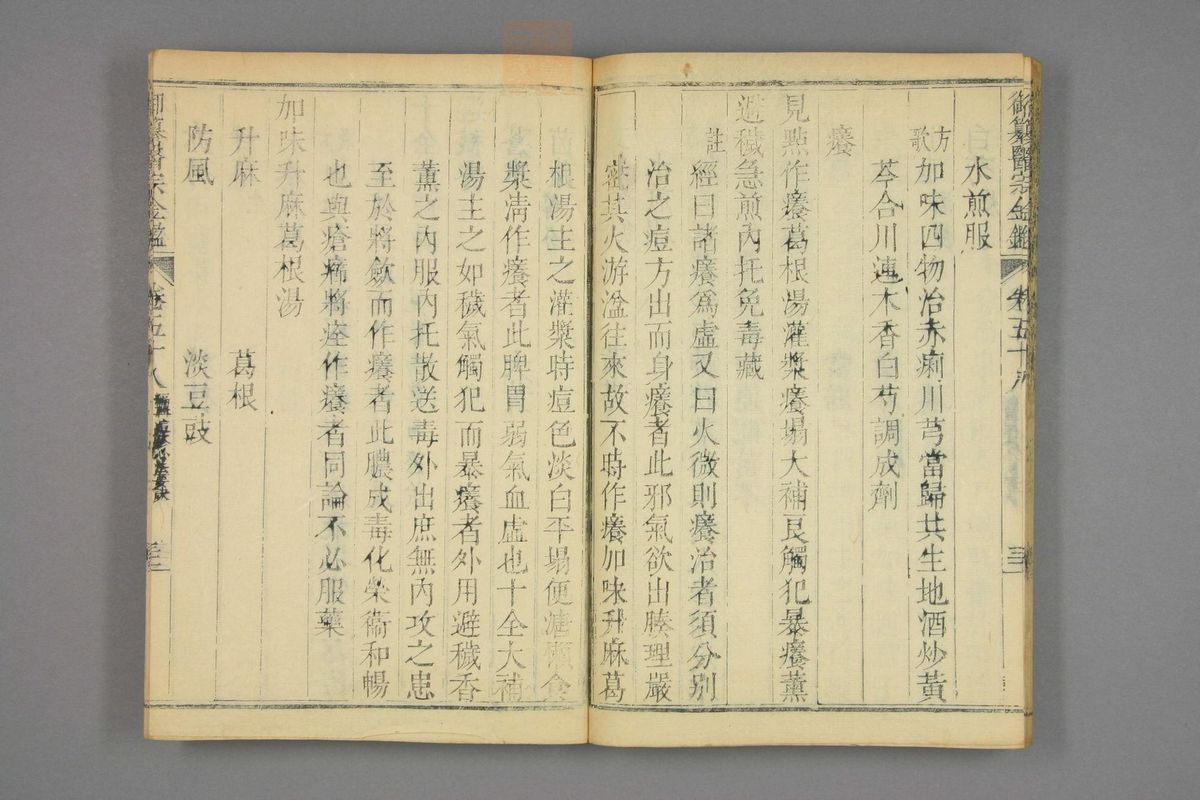 御纂醫宗金鑑 卷五十八
水煎服
方歌 加味四物治赤痢川芎當歸共生地酒炒黃
芩合川連木香白芍調成劑
癢
見點作癢葛根湯灌漿癢塌大補良觸犯暴癢薰
避穢急煎內托免毒藏
註 經曰諸癢為虛又曰火微則癢治者須分別
治之痘方出而身癢者此邪氣欲出腠理嚴
密其火游溢往來故不時作癢加味升麻葛
根湯主之灌漿時痘色淡白平塌便溏懶食
漿清作癢者此脾胃弱氣血虛也十全大補
湯主之如穢氣觸犯而暴癢者外用避穢香
薰之內服內托散送毒外出庶無內攻之患
至於將歛而作癢者此膿成毒化榮衞和暢
也與瘡瘍將痊作癢者同論不必服藥
加味升麻葛根湯
升麻 葛根
防風 淡豆豉
御纂醫宗金鑑 卷五十八